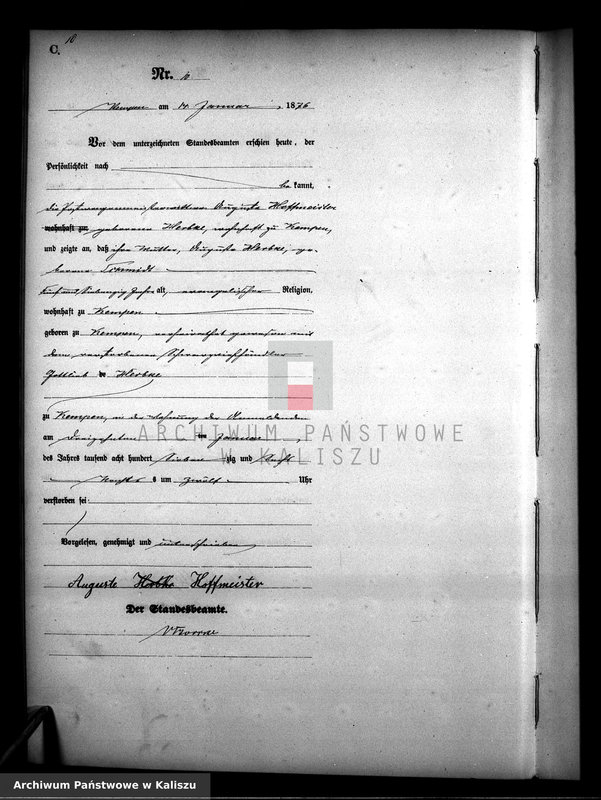 C. 10
Nr. 10
Kempen am 14 Januar 1876
Vor dem unterzeichneten Standesbeamten erschien heute, der
Persönlichkeit nach
bekannt,
die Auguste Hoffmeister
wohnhaft zu geborene Werbke, wohnhaft zu Kempen,
und zeigte an, daß ihre Mutter, Auguste Werbke, ge-
borene Schmidt
fünf und siebenzig Jahre alt, evangelischer Religion,
wohnhaft zu Kempen
geboren zu Kempen, verheirathet gewesen mit
dem verstorbenen
Gottlieb Werbke
zu Kempen, in der Wohnung der Anmeldenden
am dreizehnten Januar
des Jahres tausend acht hundert siebenzig und sechs
Nachts um zwölf Uhr
verstorben sei
Vorgelesen, genehmigt und unterschrieben
Auguste Hoffmeister
Der Standesbeamte.
ARCHIWUM PAŃSTWOWE
W KALISZU
Archiwum Państwowe w Kaliszu